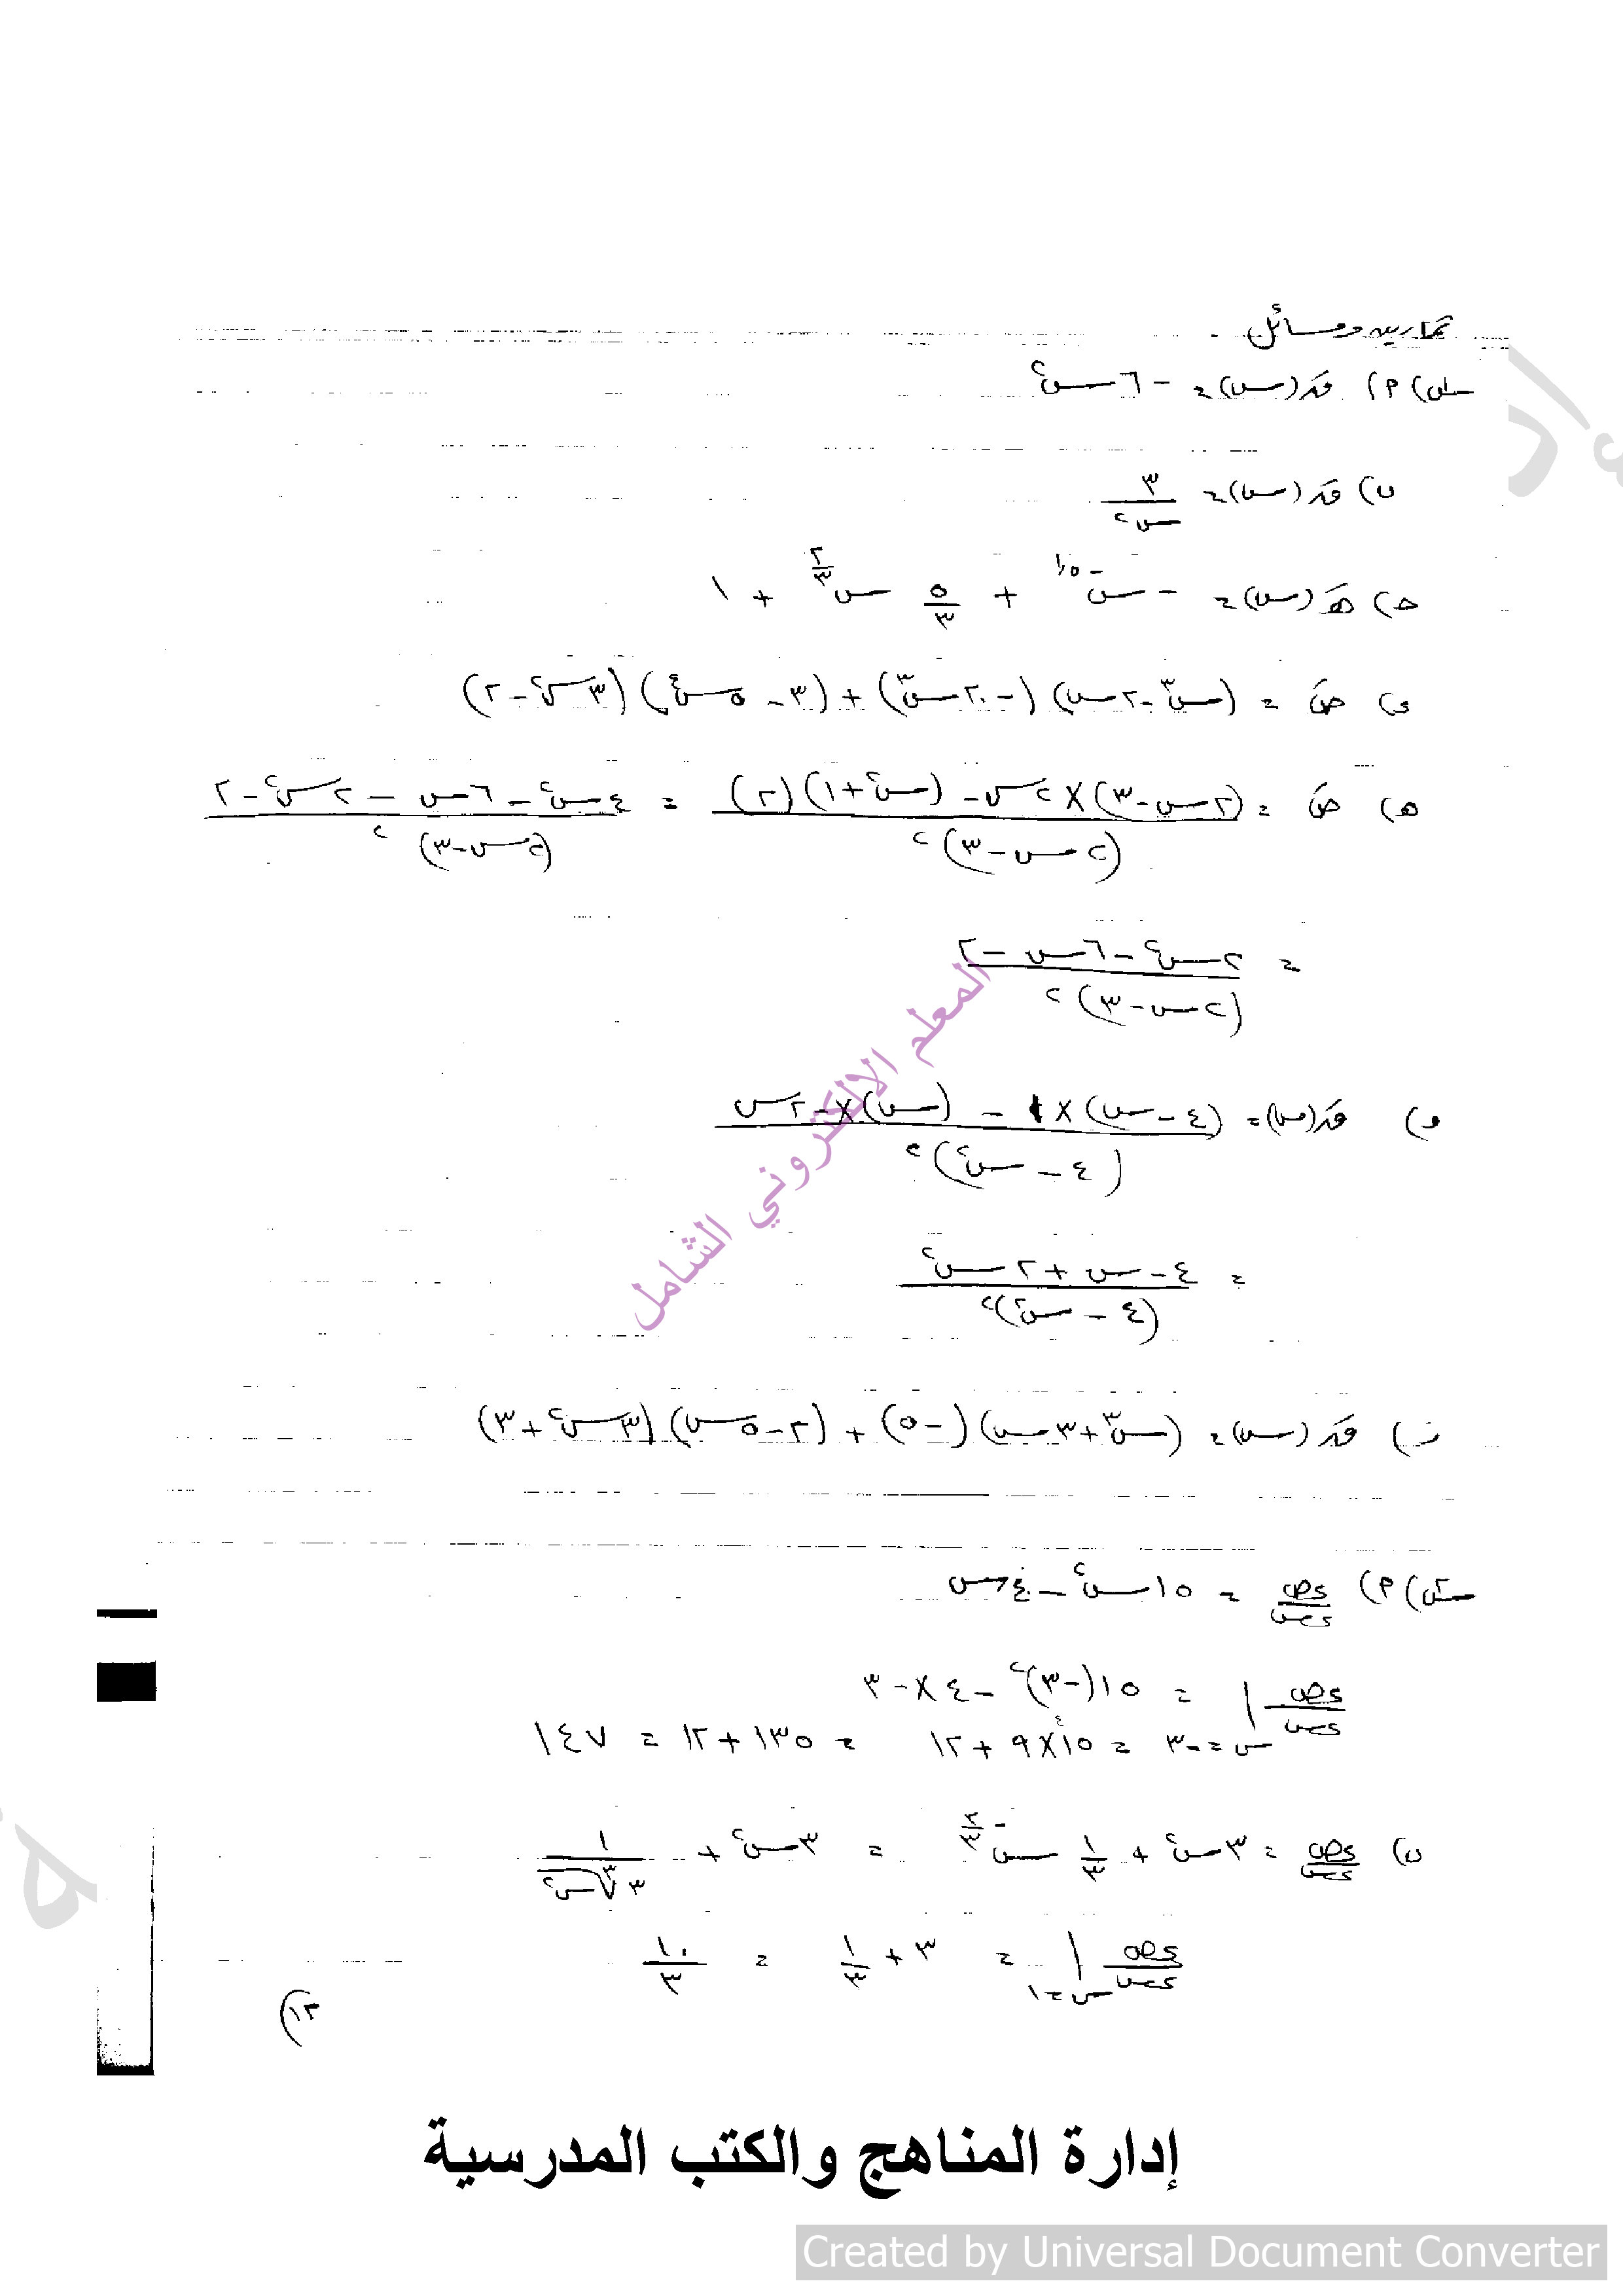 تمارين ومسائل
س١) أ) قَ(س) = -٦س٢
ب) قَ(س) = ٣/س٢
جـ) هـَ(س) = -س-١٥ + ٥/٣ س٢/٣ + ١
د) صَ = (س٣-٢س)(-٢٠س٣) + (٣-٥س٤)(٣س٢-٢)
هـ) صَ = (٢س-٣)×٢س-(س٢+١)(٢)/(٢س-٣)٢ = ٤س٢-٦س-٢س٢-٢/(٢س-٣)٢
= ٢س٢-٦س-٢/(٢س-٣)٢
و) قَ(س) = (٤-س)×١-(س)×-٢س/(٤-س٢)٢
= ٤-س+٢س٢/(٤-س٢)٢
ز) قَ(س) = (س٣+٣س)(-٥) + (٢-٥س)(٣س٢+٣)
س٢) أ) دص/دس = ١٥س٢-٤س
دص/دس | س=-٣ = ١٥(-٣)٢-٤×-٣
= ١٥×٩+١٢ = ١٣٥+١٢ = ١٤٧
ب) دص/دس = ٣س٢ + ١/٣ س-٢/٣ = ٣س٢ + ١/٣∛س٢
دص/دس | س=١ = ٣+١/٣ = ١٠/٣
(١٢
المعلم الالكتروني الشامل
إدارة المناهج والكتب المدرسية
Created by Universal Document Converter